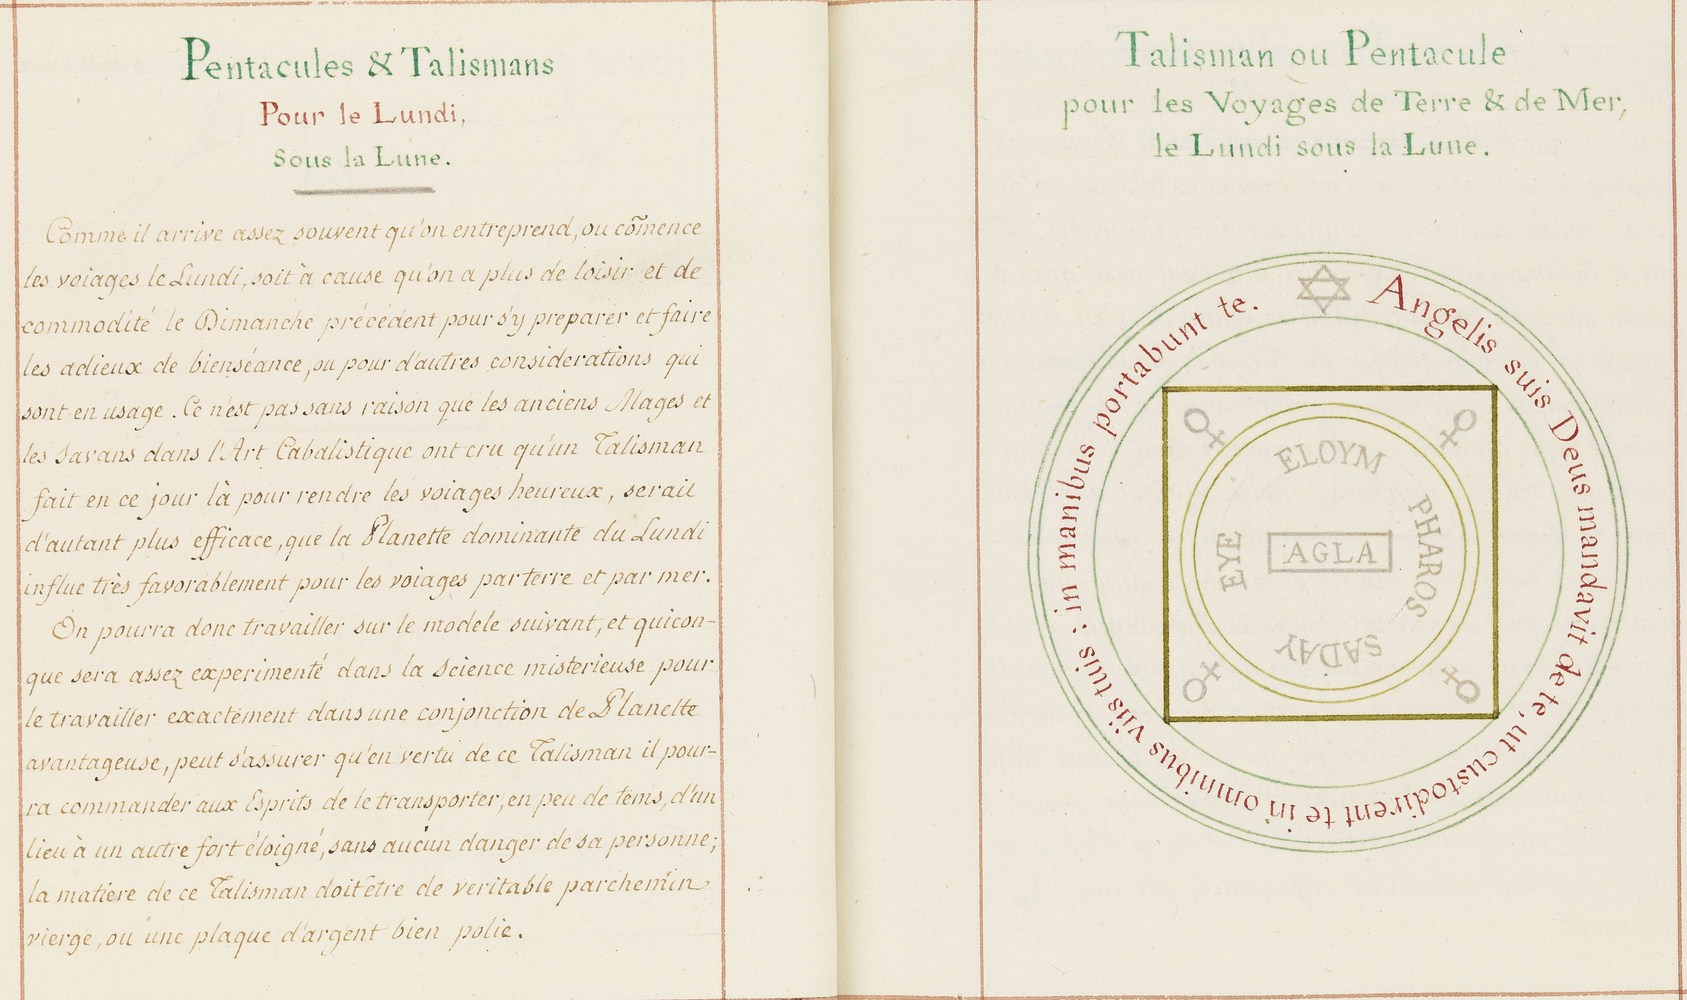 Pentacules & Talismans
Pour le Lundi,
sous la Lune.
Comme il arrive assez souvent qu'on entreprend, ou co͞mence
les voiages le Lundi, soit à cause qu'on a plus de loisir et de
commodité le Dimanche précédent pour s'y preparer et faire
les adieux de bienséance, ou pour d'autres considerations qui
sont en usage. Ce n'est pas sans raison que les anciens Mages et
les savans dans l'Art Cabalistique ont cru qu'un Talisman
fait en ce jour là pour rendre les voiages heureux, serait
d'autant plus efficace, que la Planette dominante du Lundi
influe très favorablement pour les voiages par terre et par mer.
On pourra donc travailler sur le modele suivant, et quicon-
que sera assez experimenté dans la science misterieuse pour
le travailler exactement dans une conjonction de Planette
avantageuse, peut s'assurer qu'en vertu de ce Talisman il pour-
ra commander aux Esprits de le transporter, en peu de tems, d'un
lieu à un autre fort éloigné, sans aucun danger de sa personne;
la matiere de ce Talisman doit être de veritable parchemin
vierge, ou une plaque d'argent bien polie.
Talisman ou Pentacule
pour les Voyages de Terre & de Mer,
le Lundi sous la Lune.
Angelis suis Deus mandavit de te, ut custodirent te in omnibus viis tuis: in manibus portabunt te.
ELOYM
PHAROS
SADAY
EYE
AGLA